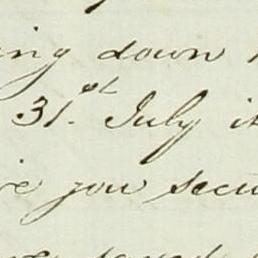 ing down
31st July it
you secu